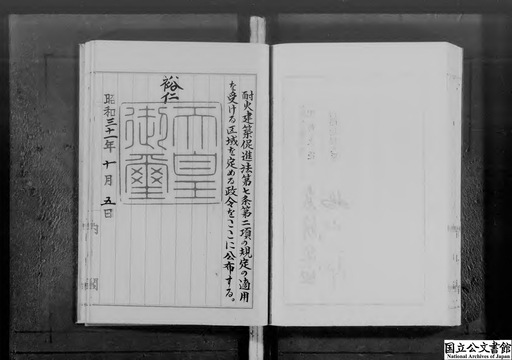 耐火建築促進法第七条第二項の規定の適用
を受ける区域を定める政令をここに公布する。
裕仁
天皇
御璽
昭和三十一年十月五日
国立公文書館
National Archives of Japan